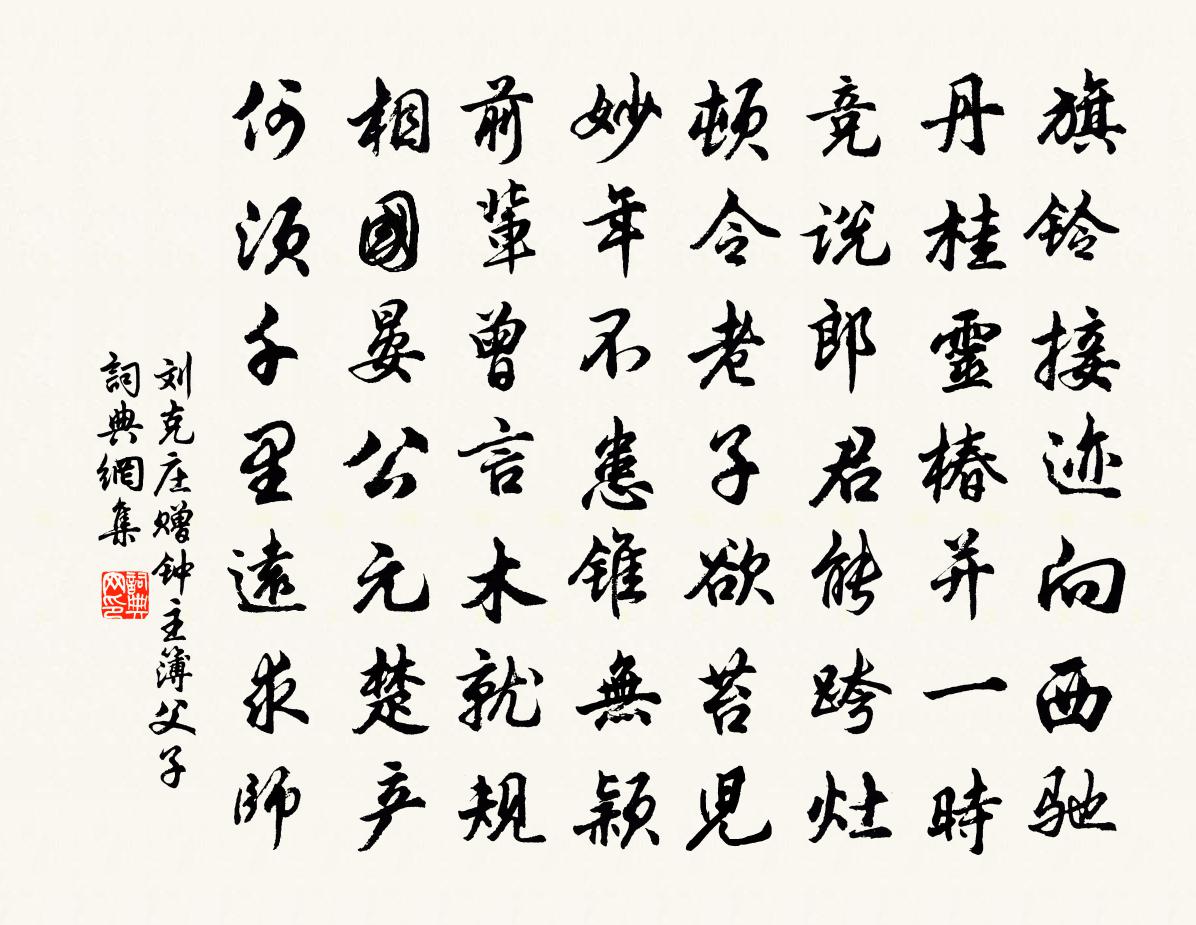 旗铃接迹向西驰
丹桂靈椿并一時
竞说郎君能跨灶
顿令老子欲苔児
妙年不患锥無颖
前輩曾言木就規
相國晏公元楚产
何须千里遠求師
刘克庄赠钟主簿父子
詞典網集
詞典网印